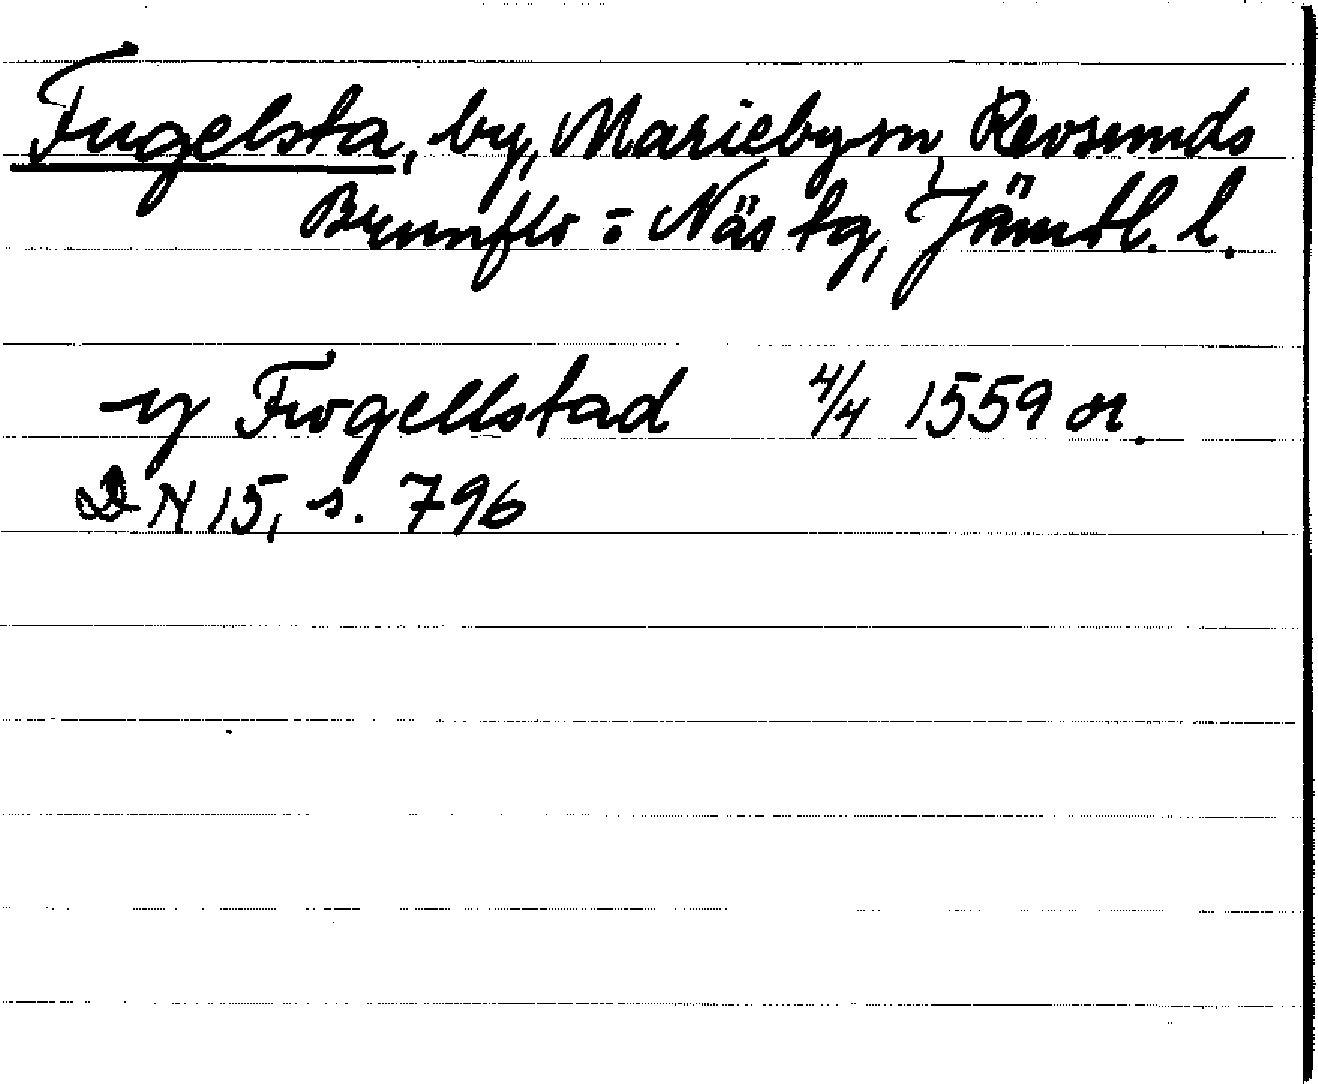 Fugelsta, by, Marieby sn, Revsunds
Brunflo = Näs tg, Jämtl. l.
y Fwgellstad 4/4 1559 or.
DN 15, s. 796